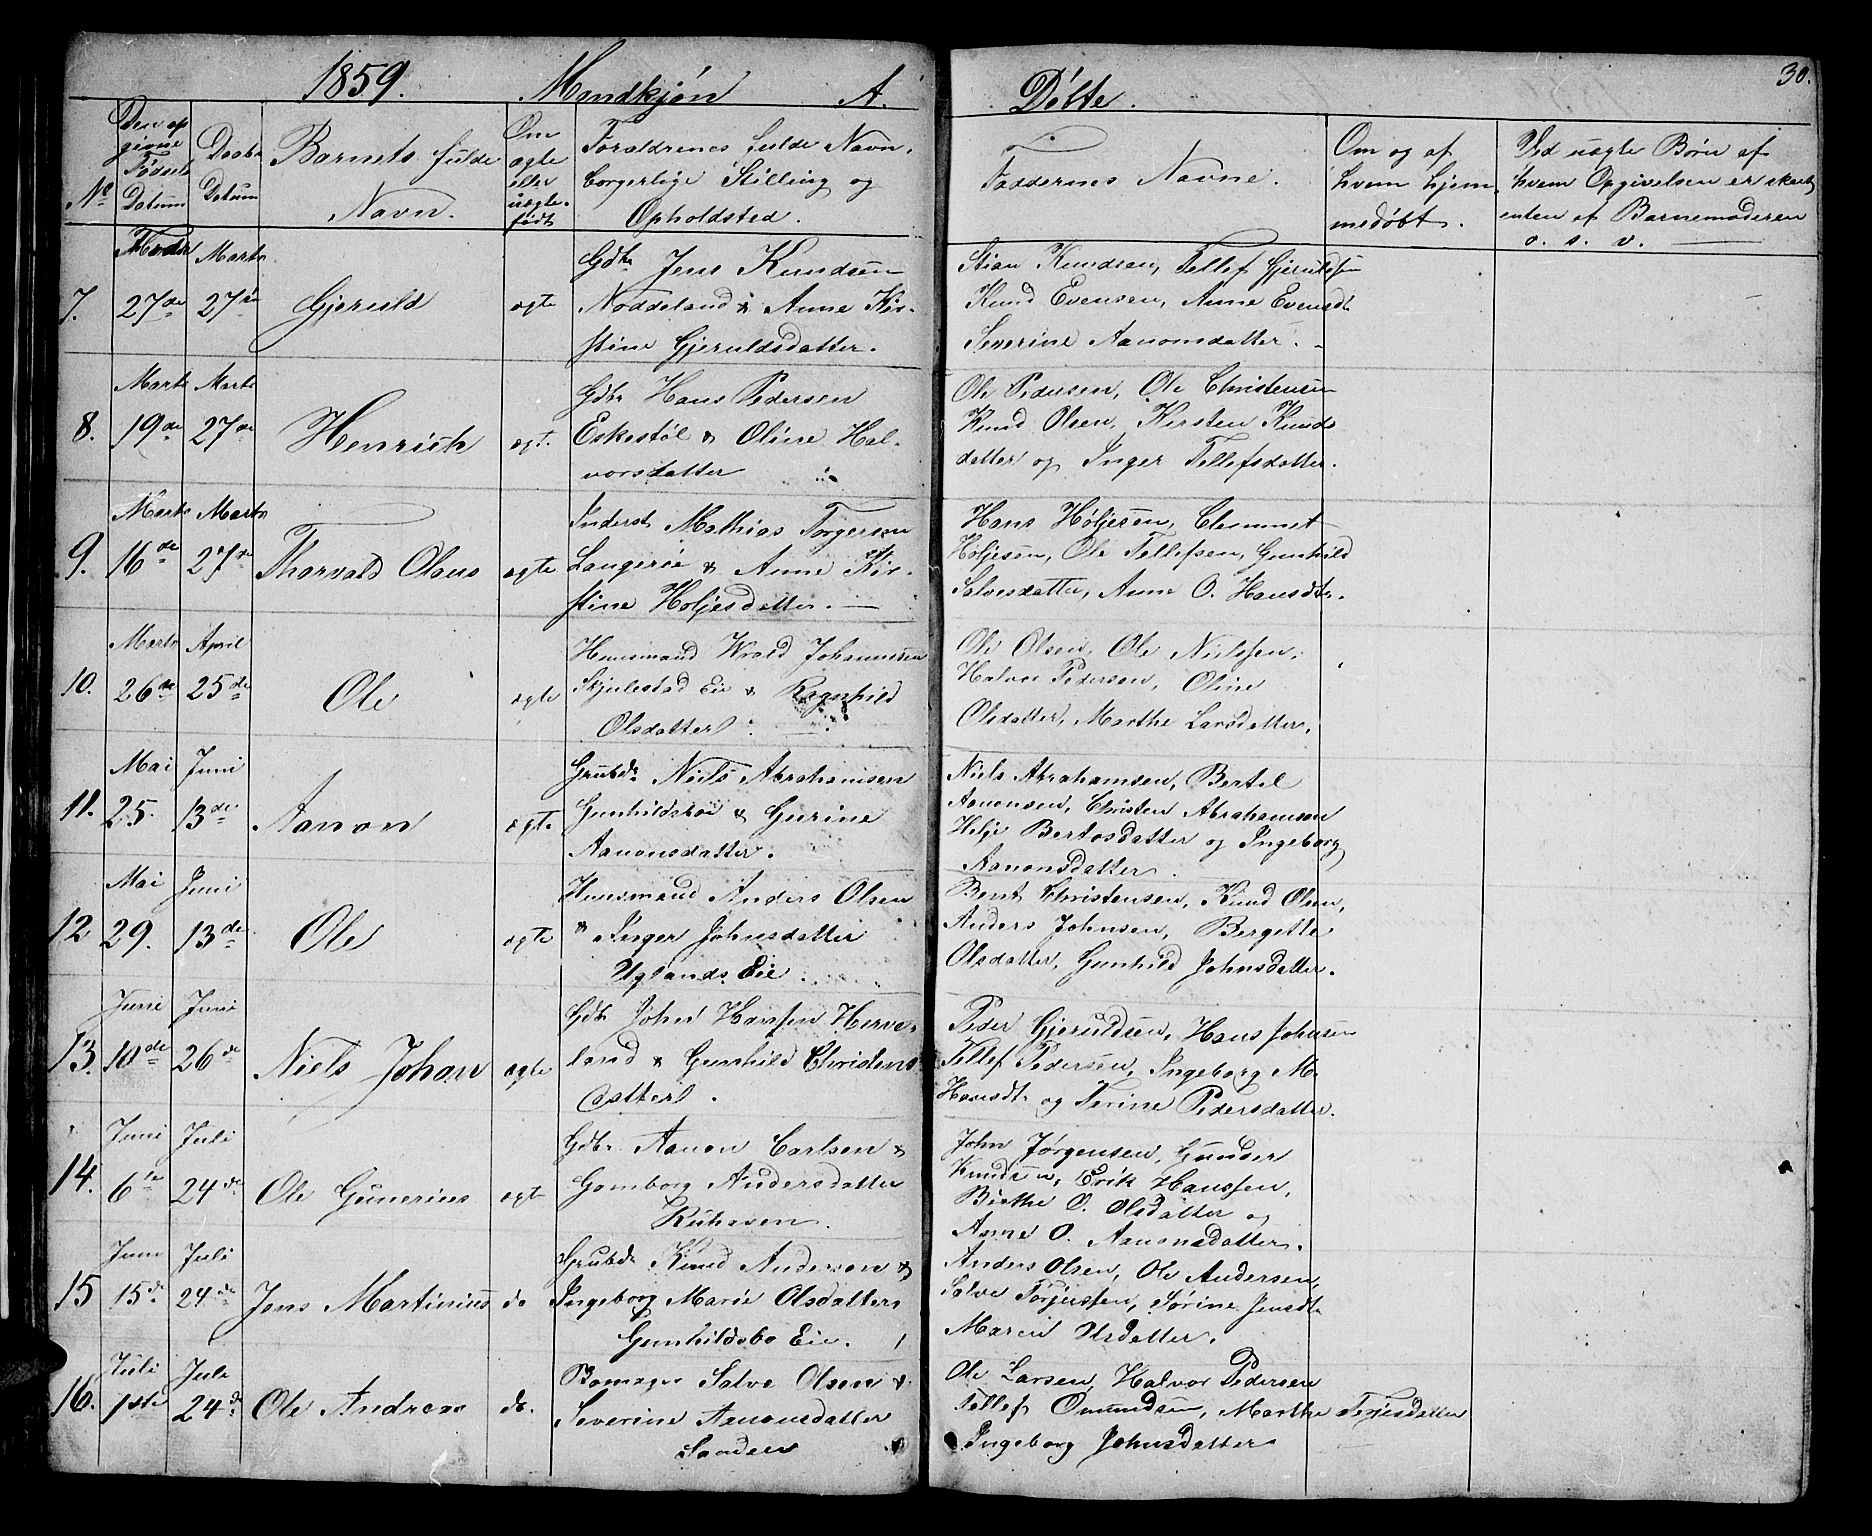 1859. Mandkjøn A. Døbte. 30.
No
Den op
givne
Fødsels
Datum
Daabs
Datum
Barnets fulde
Navn.
Om
ægte
eller
uægte
født
Forældrenes fulde Navn,
borgerlige Stilling og
Opholdsted.
Faddernes Navne.
Om og af
hvem hjem
medøbt.
Ved uægte Børn af
hvem Opgivelsen er skeet,
enten af Barnemoderen
o. s. v.
7.
27de
Marts
27de
Gjeruld
ægte
Gdbr Jens Knudsen
Noddeland & Anne Kir-
stine Gjeruldsdatter.
Stian Knudsen, Tellef Gjeruldsen
Knud Evensen, Anne Evensdt
Severine Aanonsdatter.
8.
Marts
19de
Marts
27de
Henrich
ægt.
Gdbr Hans Pedersen
Eskestøl & Oline Hal-
vorsdatter
Ole Pedersen, Ole Christensen
Knud Olsen, Kirsten Knuds
datter og Inger Tellefsdatter.
9.
Marts
16de
Marts
27de
Thorvald Olaus
ægte
Inderst Mathias Torgersen
Langerøe & Anne Kir-
stine Holjesdatter.
Hans Høljesen, Clemmet
Holjesen, Ole Tellefsen, Gunhild
Salvesdatter, Anne O. Hansdtr.
10.
Marts
26de
April
25de
Ole
ægte
Huusmand Wrold Johannesen
Skjulestad Eie & Ragnhild
Olsdatter
Ole Olsen, Ole Nielssen,
Halvor Pedersen, Oline
Olsdatter, Marthe Larsdatter.
11.
Mai
25.
Juni
13de
Aanon
ægte
Grubdr Niels Abrahamsen
Gunhildsboe & Gurine
Aanonsdatter.
Niels Abrahamsen, Bertel
Aanonsen, Christen Abrahamsen
Helje Bertosdatter og Ingeborg
Aanonsdatter
12
Mai
29.
Juni
13de
Ole
ægte
Huusmand Anders Olsen
& Inger Johnsdatter
Uglands Eie
Bent Christensen, Knud Olsen,
Anders Johnsen, Bergette
Olsdatter, Gunhild Johnsdatter.
13.
Juni
10de
Juni
26de
Niels Johan
ægte
Gdbr John Hanssen Herve-
land & Gunhild Christens
datter.
Peder Gjeruldsen, Hans Johnsen
Tellef Pedersen, Ingeborg M.
Hansdtr og Terine Pedersdatter.
14.
Juni
6te
Juli
24de
Ole Gunerius
ægt
Gdbr Aanon Carlsen &
Gomborg Andersdatter
John Jørgensen, Gunder
Knudsen, Erik Hanssen,
Birthe O. Olsdatter og
Anne O. Aanonsdatter.
15
Juni
15de
Juli
24de
Jens Martinius
do
Grubdr Knud Anderson &
Ingeborg Marie Olsdatter
Gunhildsbo Eie.
Anders Olsen, Ole Andersen,
Salve Torjussen, Sørine Jensdt
Maren Olsdatter.
16.
Juli
1ste
Juli
24d
Ole Andreas
do.
Salve Olsen &
Severine Aanonsdatter
Sanden
Ole Larsen, Halvor Pedersen
Tellef Omundsen, Marthe Terjesdatter
Ingeborg Johnsdatter